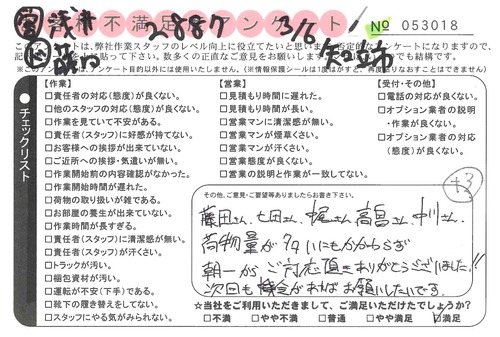 不満足 アンケート
2887 3/6 知立市
№ 053018
このアンケートは、弊社作業スタッフのレベル向上に役立てたいと思います。否定的なアンケートになりますので、
ご意見をお願いします
※このアンケートは、アンケート目的以外には使用いたしません。(※情報保護シールは1度はがすと、再度貼りなおすことはできません。)
チェックリスト
【作業】
□責任者の対応(態度)が良くない。
□他のスタッフの対応(態度)が良くない。
□作業を見ていて不安がある。
□責任者(スタッフ)に好感が持てない。
□お客様への挨拶が出来ていない。
□ご近所への挨拶・気遣いが無い。
□作業開始前の内容確認がなかった。
□作業開始時間が遅れた。
□荷物の取り扱いが雑である。
□お部屋の養生が出来ていない。
□作業時間が長すぎる。
□責任者(スタッフ)に清潔感が無い。
□責任者(スタッフ)が汗くさい。
□トラックが汚い。
□梱包資材が汚い。
□運転が不安(下手)である。
□靴下の履き替えをしてない。
□スタッフにやる気がみられない。
【営業】
□見積もり時間に遅れた。
□見積もり時間が長い。
□営業マンに清潔感が無い。
□営業マンが煙草くさい。
□営業マンが汗くさい。
□営業態度が良くない。
□営業の説明と作業が一致してない。
【受付・その他】
□電話の対応が良くない。
□オプション業者の説明
・作業が良くない。
□オプション業者の対応
(態度)が良くない。
+3
その他、ご意見・ご要望等ありましたらお書き下さい。
藤田さん、七田さん、梶さん、高畠さん、中川さん、
荷物量が多いにもかかわらず
朝一から、ご対応頂きありがとうございました!!
次回も機会があればお願いしたいです。
☆当社をご利用いただきまして、ご満足いただけたでしょうか?
□不満 □やや不満 □普通 □やや満足 ☑満足